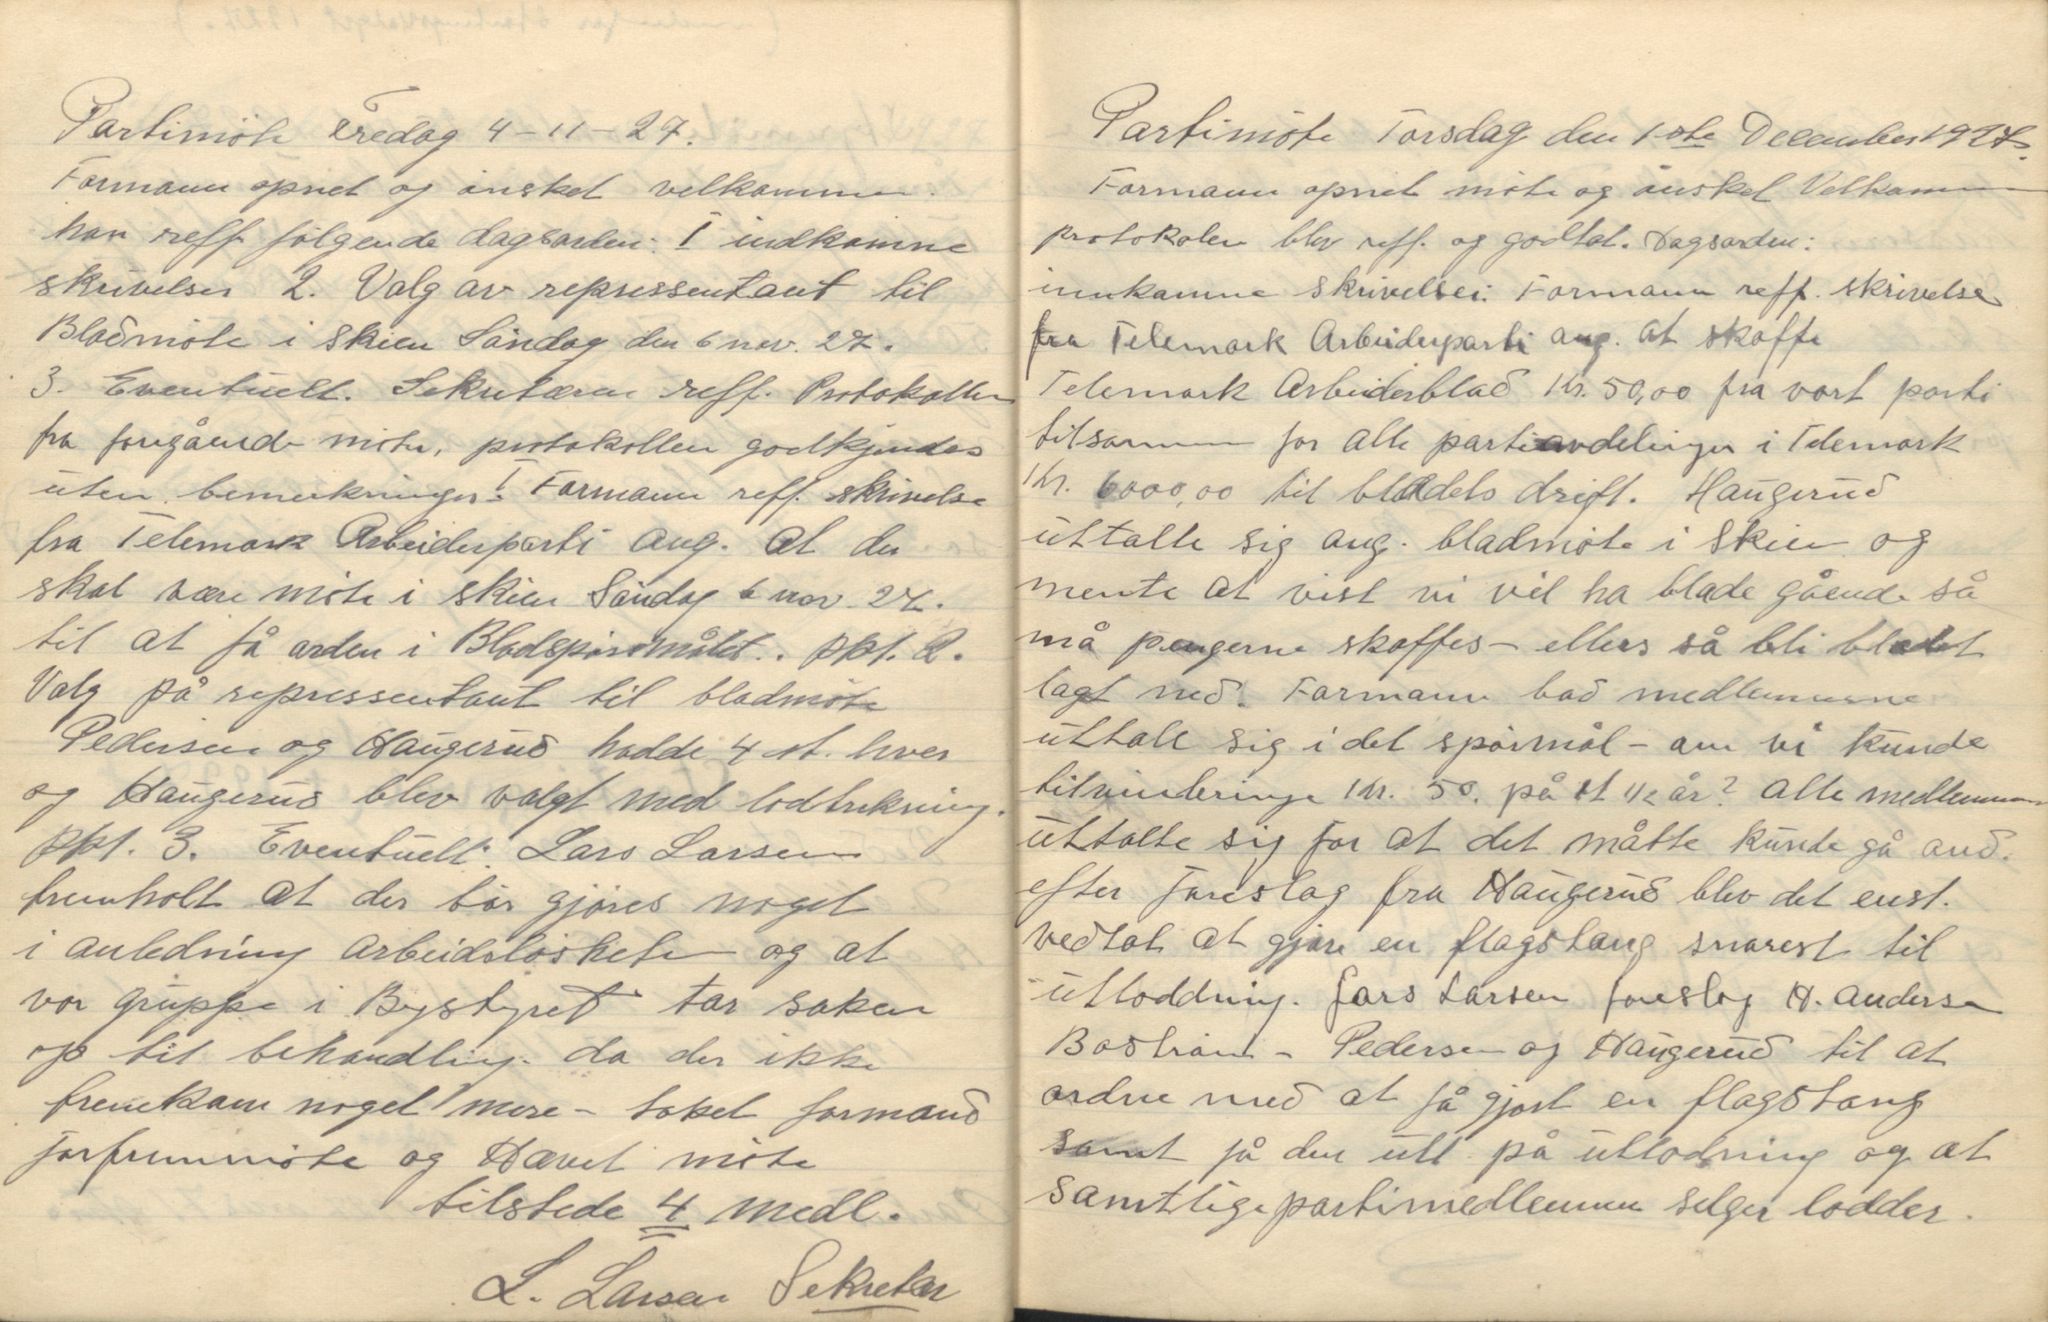 Partimöte Fredag 4-11-27.
Formann opnet og önsket velkommen.
han reff. følgende dagsorden: I indkomne
skrivelser 2. Valg av repressentant til
Bladmöte i Skien Söndag den 6 nov. 27.
3. Eventuelt. Sekretæren reff. Protokollen
fra foregående möte, protokollen godkjendes
uten bemerkninger. I Formann reff. skrivelse
fra Telemark Arbeiderparti ang. at der
skal være möte i skien Söndag 6 nov. 27.
til at få orden i Bladspörsmålet. pkt. 2.
Valg på repressentant til bladmöte
Pedersen og Haugerud hadde 4 st. hver
og Haugerud blev valgt med lodtrekning.
pkt. 3. Eventuelt. Lars Larsen
fremholt at der bör gjöres noget
i anledning arbeidslösheten og at
vor gruppe i Bystyret tar saken
op til behandling. da der ikke
fremkom noget mere - takket formand
for fremmöte og Hævet möte
tilstede 4 medl.
L. Larsen Sekretær
Partimöte Torsdag den 1-ste December 1927.
Formann opnet möte og önsket Velkommen
protokolen blev reff. og godtat. Dagsorden:
innkomne skrivelser: Formann reff. skrivelse
fra Telemark Arbeiderparti ang. at skaffe
Telemark Arbeiderblad Kr. 50,00 fra vort parti
tilsammen for alle partiavdelinger i Telemark
Kr. 6000,00 til bladets drift. Haugerud
uttalte sig ang. bladmöte i Skien og
mente at vist vi vil ha blade gående så
må pengerne skaffes - ellers så bli bladet
lagt ned. Formann bad medlemmerne
uttale sig i det spörmål - om vi kunde
tilveiebringe Kr. 50. på et 1/2 år? Alle medlemmer
uttalte sig for at det måtte kunde gå and.
efter foreslag fra Haugerud blev det enst.
vedtat at gjöre en flagstang snarest til
utloddning. Lars Larsen foreslog H. Andersen
Boström - Pedersen og Haugerud til at
ordne med at få gjort en flagstang
samt få den utt på utlodning og at
samtlige partimedlemmer selger lodder.